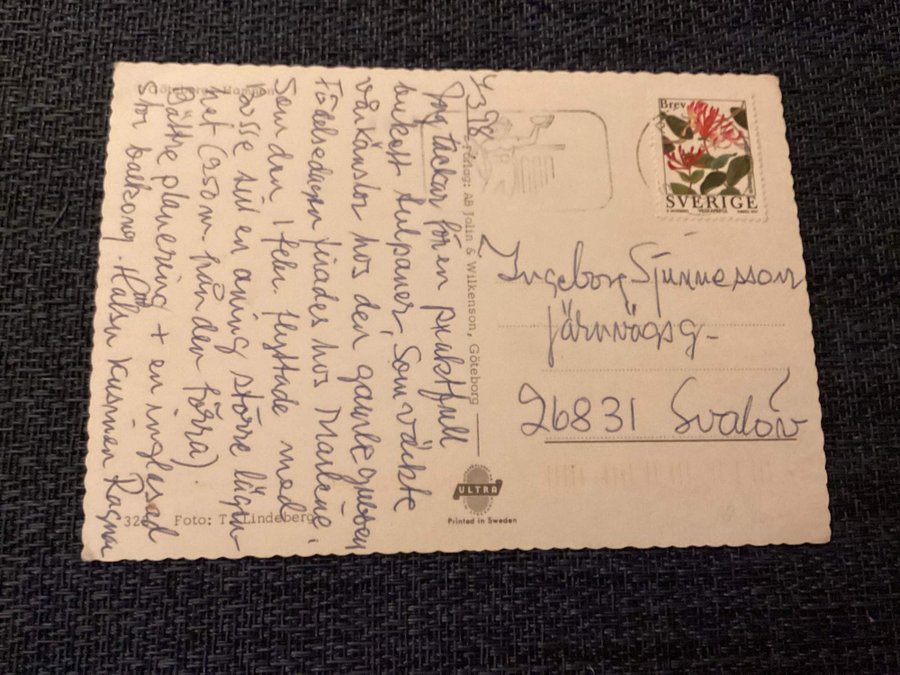 4/3 98
Jag tackar för en praktfull
bukett tulpaner, som väckte
vårkänslor hos den gamle gubben
Födelsedagen firades hos Marlene,
som den 1 febr. flyttade med
Bosse till en aning större lägen-
het (250 m. från den förra).
Bättre planering + en inglasad
stor balkong. Hälsn kusinen Ragnar
Göteborg. Hamnen
32
Foto: T. Lindeberg
Förlag: AB Jolin & Wilkenson, Göteborg
ULTRA
Printed in Sweden
Brev
SVERIGE
Ingeborg Sjunnesson
Järnvägsg-
26831 Svalöv